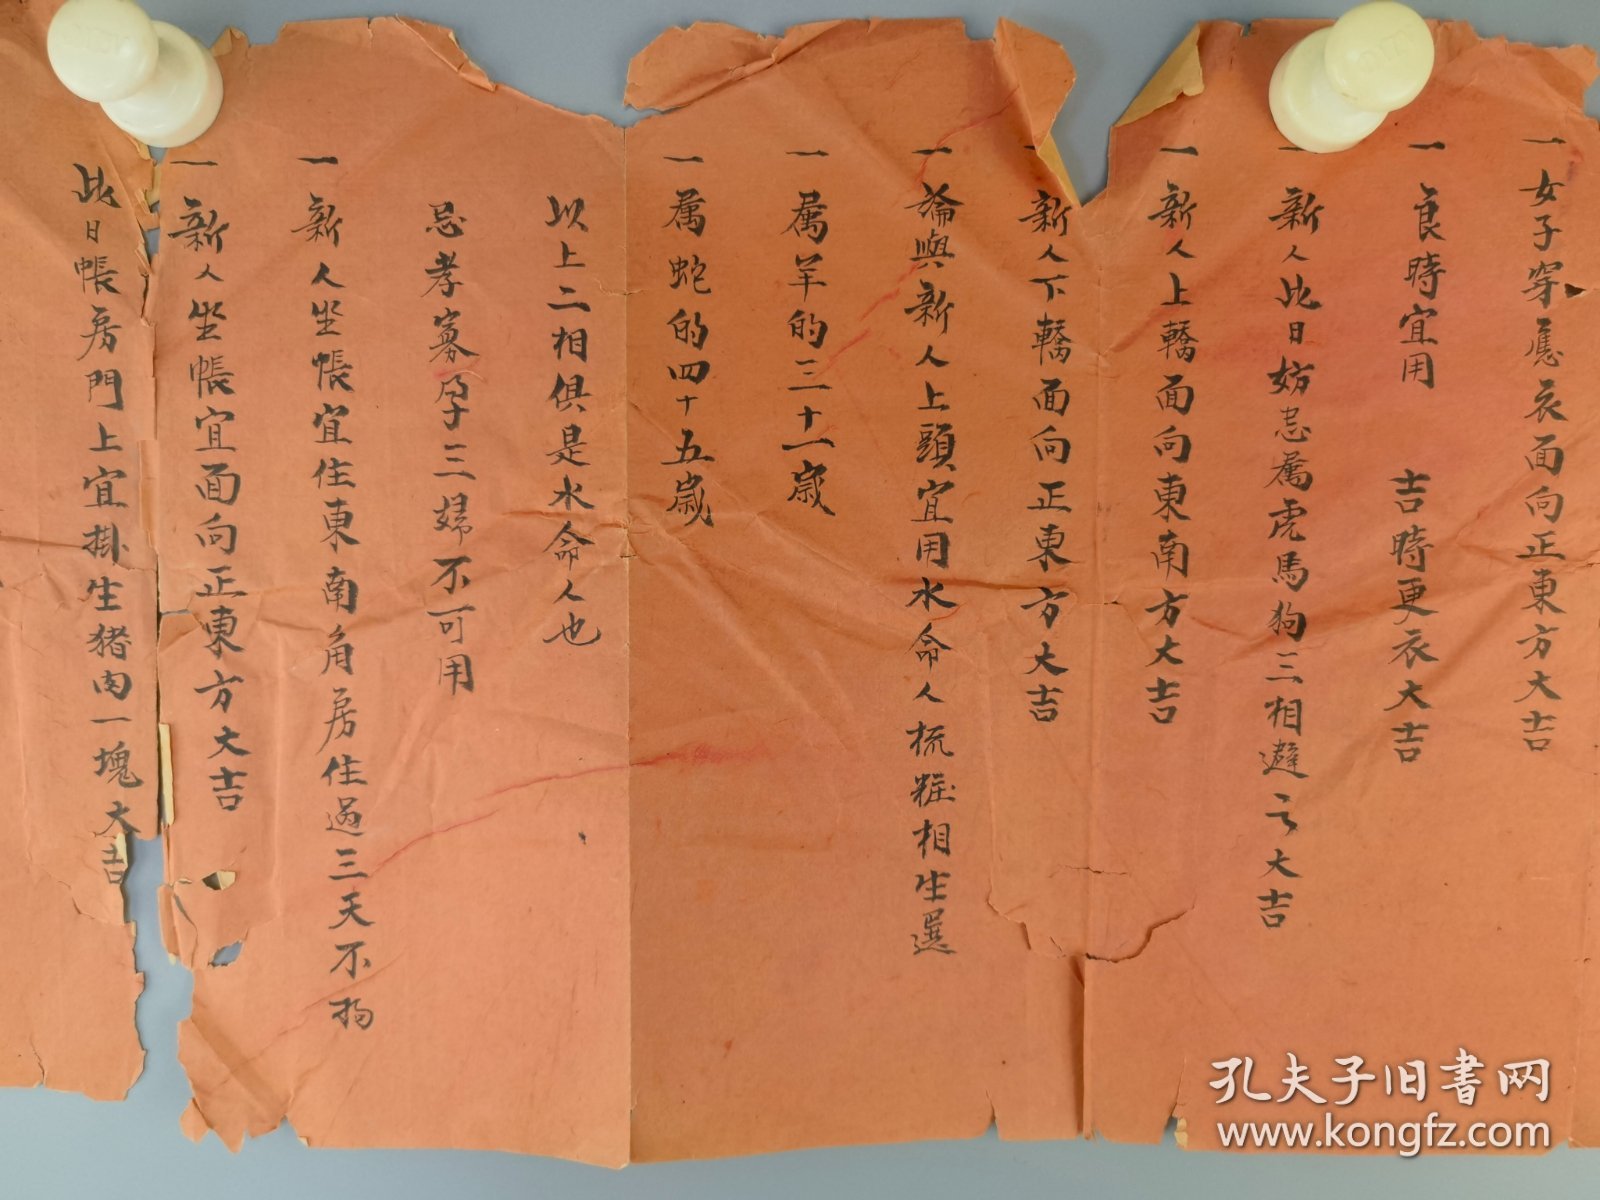 一女子穿應衣面向正東方大吉
一良時宜用 吉時更衣大吉
一新人此日妨忌属虎馬狗三相避之大吉
一新人上轎面向東南方大吉
一新人下轎面向正東方大吉
一論與新人上頭宜用水命人梳粧相生選
一属羊的三十一歲
一属蛇的四十五歲
以上二相俱是水命人也
忌孝寡孕三婦不可用
一新人坐帳宜住東南角房住過三天不拘
一新人坐帳宜面向正東方大吉
此日帳房門上宜掛生猪肉一塊大吉
孔夫子旧書网
www.kongfz.com